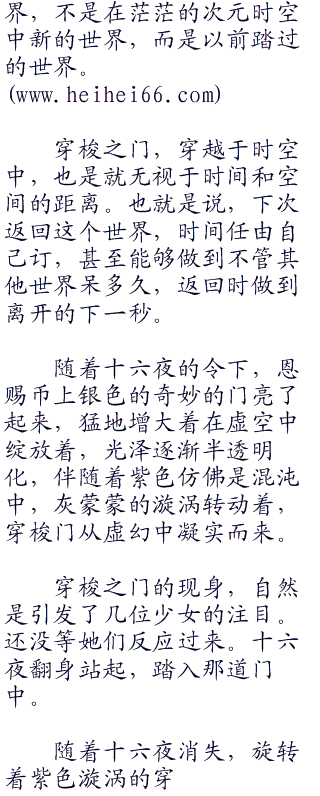 界，不是在茫茫的次元时空
中新的世界，而是以前踏过
的世界。
(www.heihei66.com)
穿梭之门，穿越于时空
中，也是就无视于时间和空
间的距离。也就是说，下次
返回这个世界，时间任由自
己订，甚至能够做到不管其
他世界呆多久，返回时做到
离开的下一秒。
随着十六夜的令下，恩
赐币上银色的奇妙的门亮了
起来，猛地增大着在虚空中
绽放着，光泽逐渐半透明
化，伴随着紫色仿佛是混沌
中，灰蒙蒙的漩涡转动着，
穿梭门从虚幻中凝实而来。
穿梭之门的现身，自然
是引发了几位少女的注目。
还没等她们反应过来。十六
夜翻身站起，踏入那道门
中。
随着十六夜消失，旋转
着紫色漩涡的穿